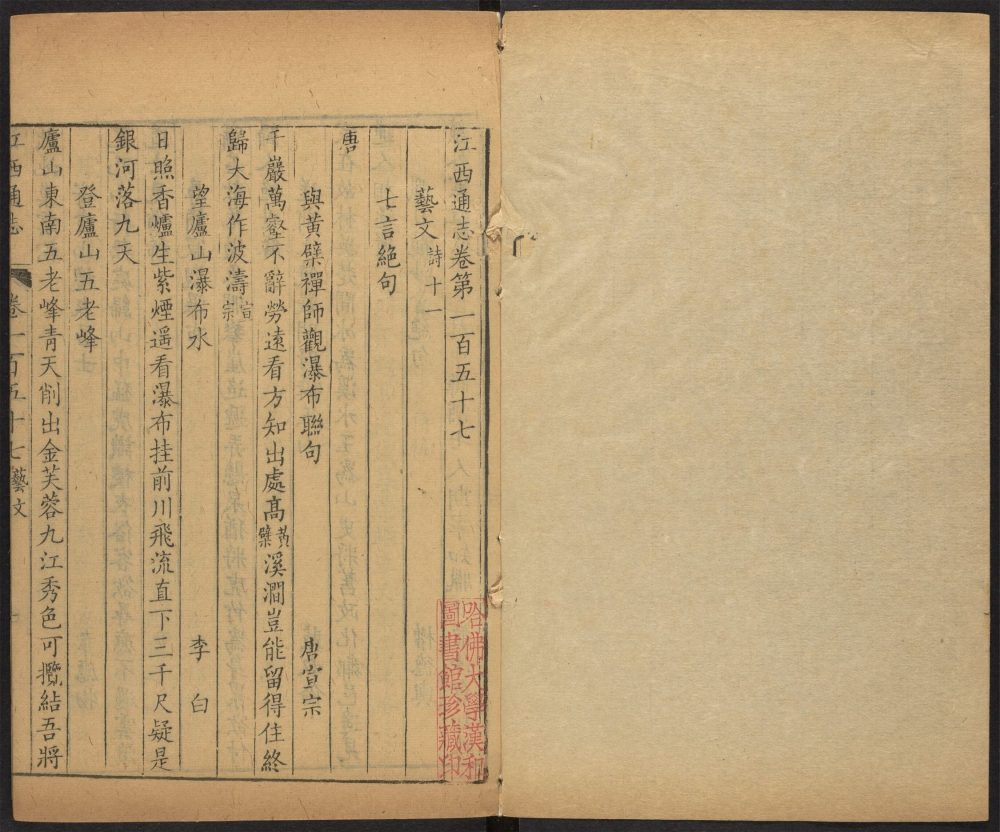 江西通志卷第一百五十七
藝文 詩十一
七言絕句
唐
與黃檗禪師觀瀑布聯句 唐宣宗
千巖萬壑不辭勞遠看方知出處高黃檗溪澗豈能留得住終
歸大海作波濤宣宗
望廬山瀑布水 李白
日照香爐生紫煙遥看瀑布挂前川飛流直下三千尺疑是
銀河落九天
登廬山五老峰
廬山東南五老峰青天削出金芙蓉九江秀色可攬結吾將
江西通志 卷一百五十七 藝文
哈佛大學漢和
圖書館珍藏印